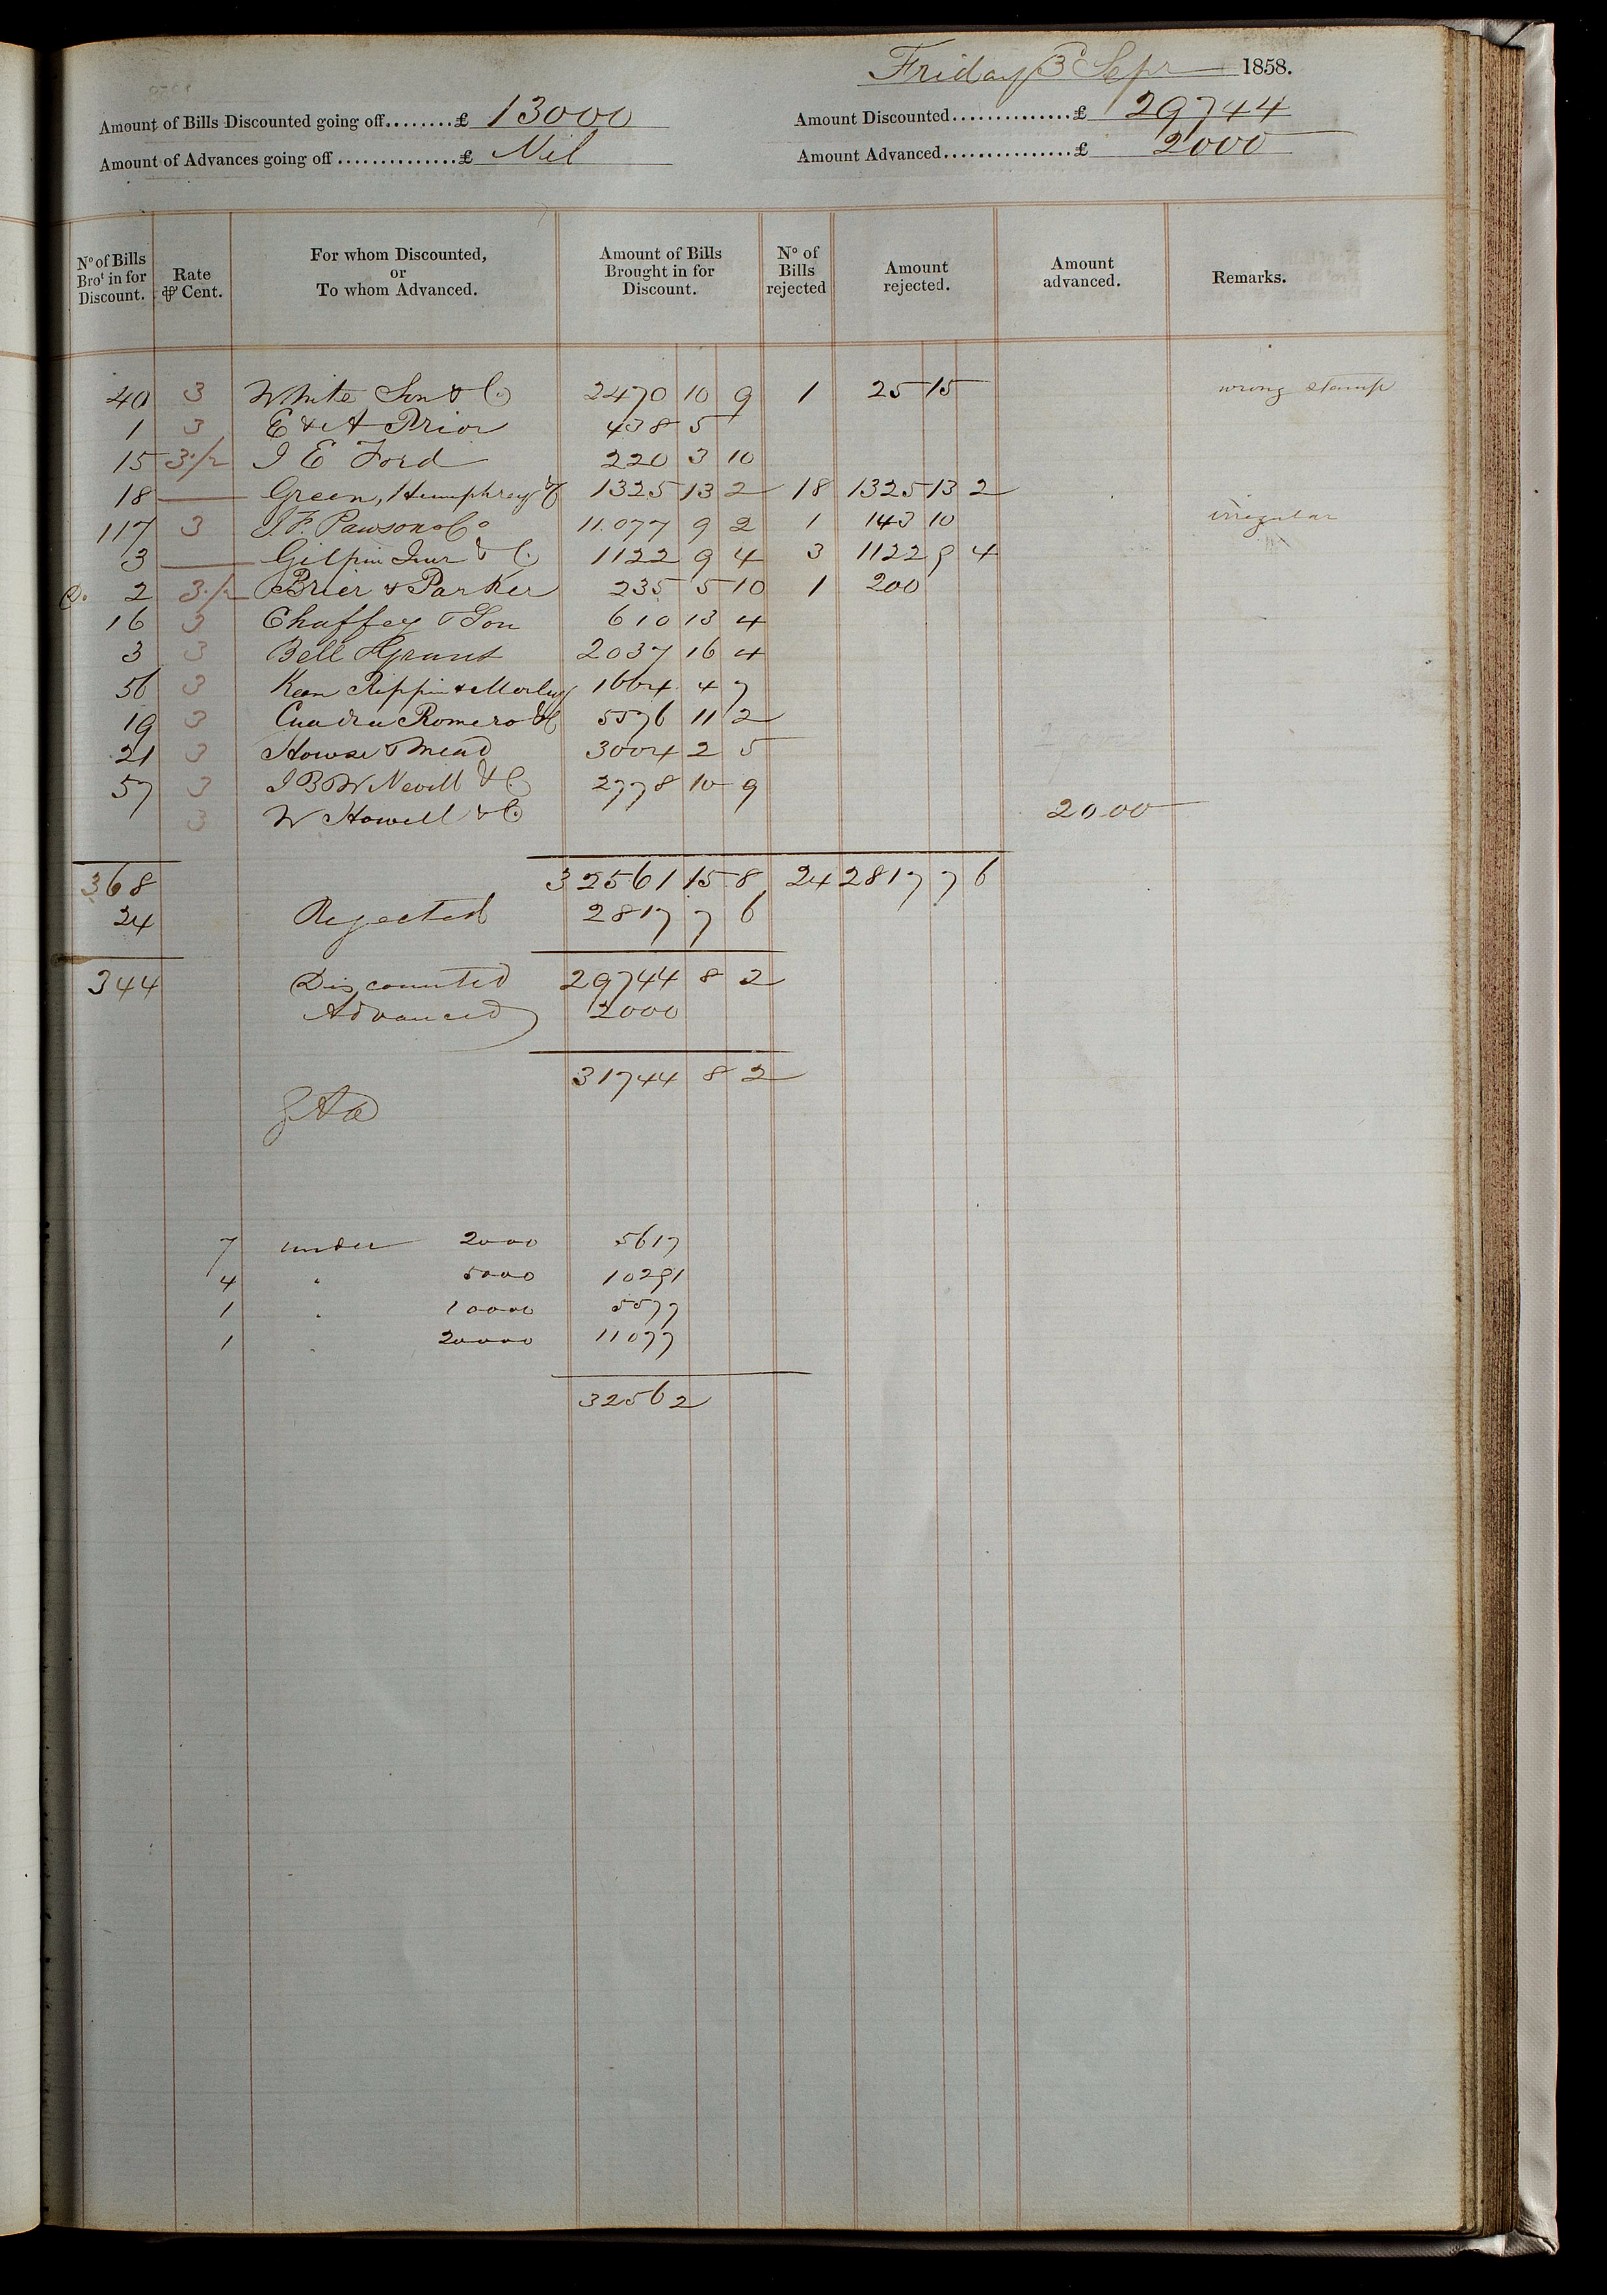 Friday 3 Sepr 1858.
Amount of Bills Discounted going off........£ 13000 Amount Discounted..............£ 29744
Amount of Advances going off..............£ Nil Amount Advanced...............£ 2000
No of Bills Brot in for Discount. Rate ⅌ Cent. For whom Discounted, or To whom Advanced. Amount of Bills Brought in for Discount. No of Bills rejected Amount rejected. Amount advanced. Remarks.
40 3 White Son & Co 2470 10 9 1 25 15 wrong stamp
1 3 E & A Prior 438 5
15 3 1/2 J E Ford 220 3 10
18 — Green, Humphrey & Co 1325 13 2 18 1325 13 2
117 3 J. F. Pawson & Co 11.077 9 2 1 143 10 irregular
3 — Gilpin Junr & Co 1122 9 4 3 1122 9 4
2 3 1/2 Brier & Parker 235 5 10 1 200
16 3 Chaffey & Son 610 13 4
3 3 Bell & Grant 2037 16 4
56 3 Kean Rippin & Morling 1664 4 7
19 3 Cuadra Romero & Co 5576 11 2
21 3 Howse & Mead 3004 2 5
57 3 J B & W Nevill & Co 2778 10 9
3 W Howell & Co 2000
368 32561 15 8 24 2817 7 6
24 Rejected 2817 7 6
344 Discounted 29744 8 2
Advanced 2000
31744 8 2
7 under 2000 5617
4 " 5000 10291
1 " 10000 5577
1 " 20000 11077
32562